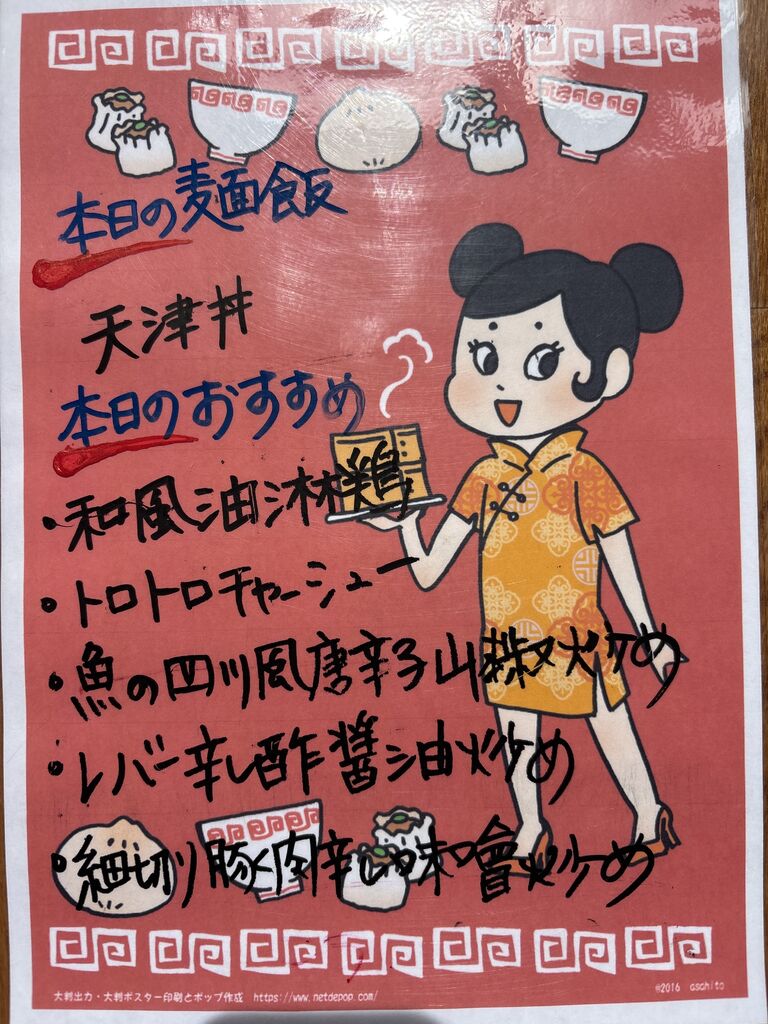 本日の麺飯
天津丼
本日のおすすめ
・和風油淋鶏
・トロトロチャーシュー
・魚の四川風唐辛子山椒炒め
・レバー辛し酢醤油炒め
・細切り豚肉辛し味噌炒め
大判出力・大判ポスター印刷とポップ作成 https://www.netdepop.com/
©2016 asahito